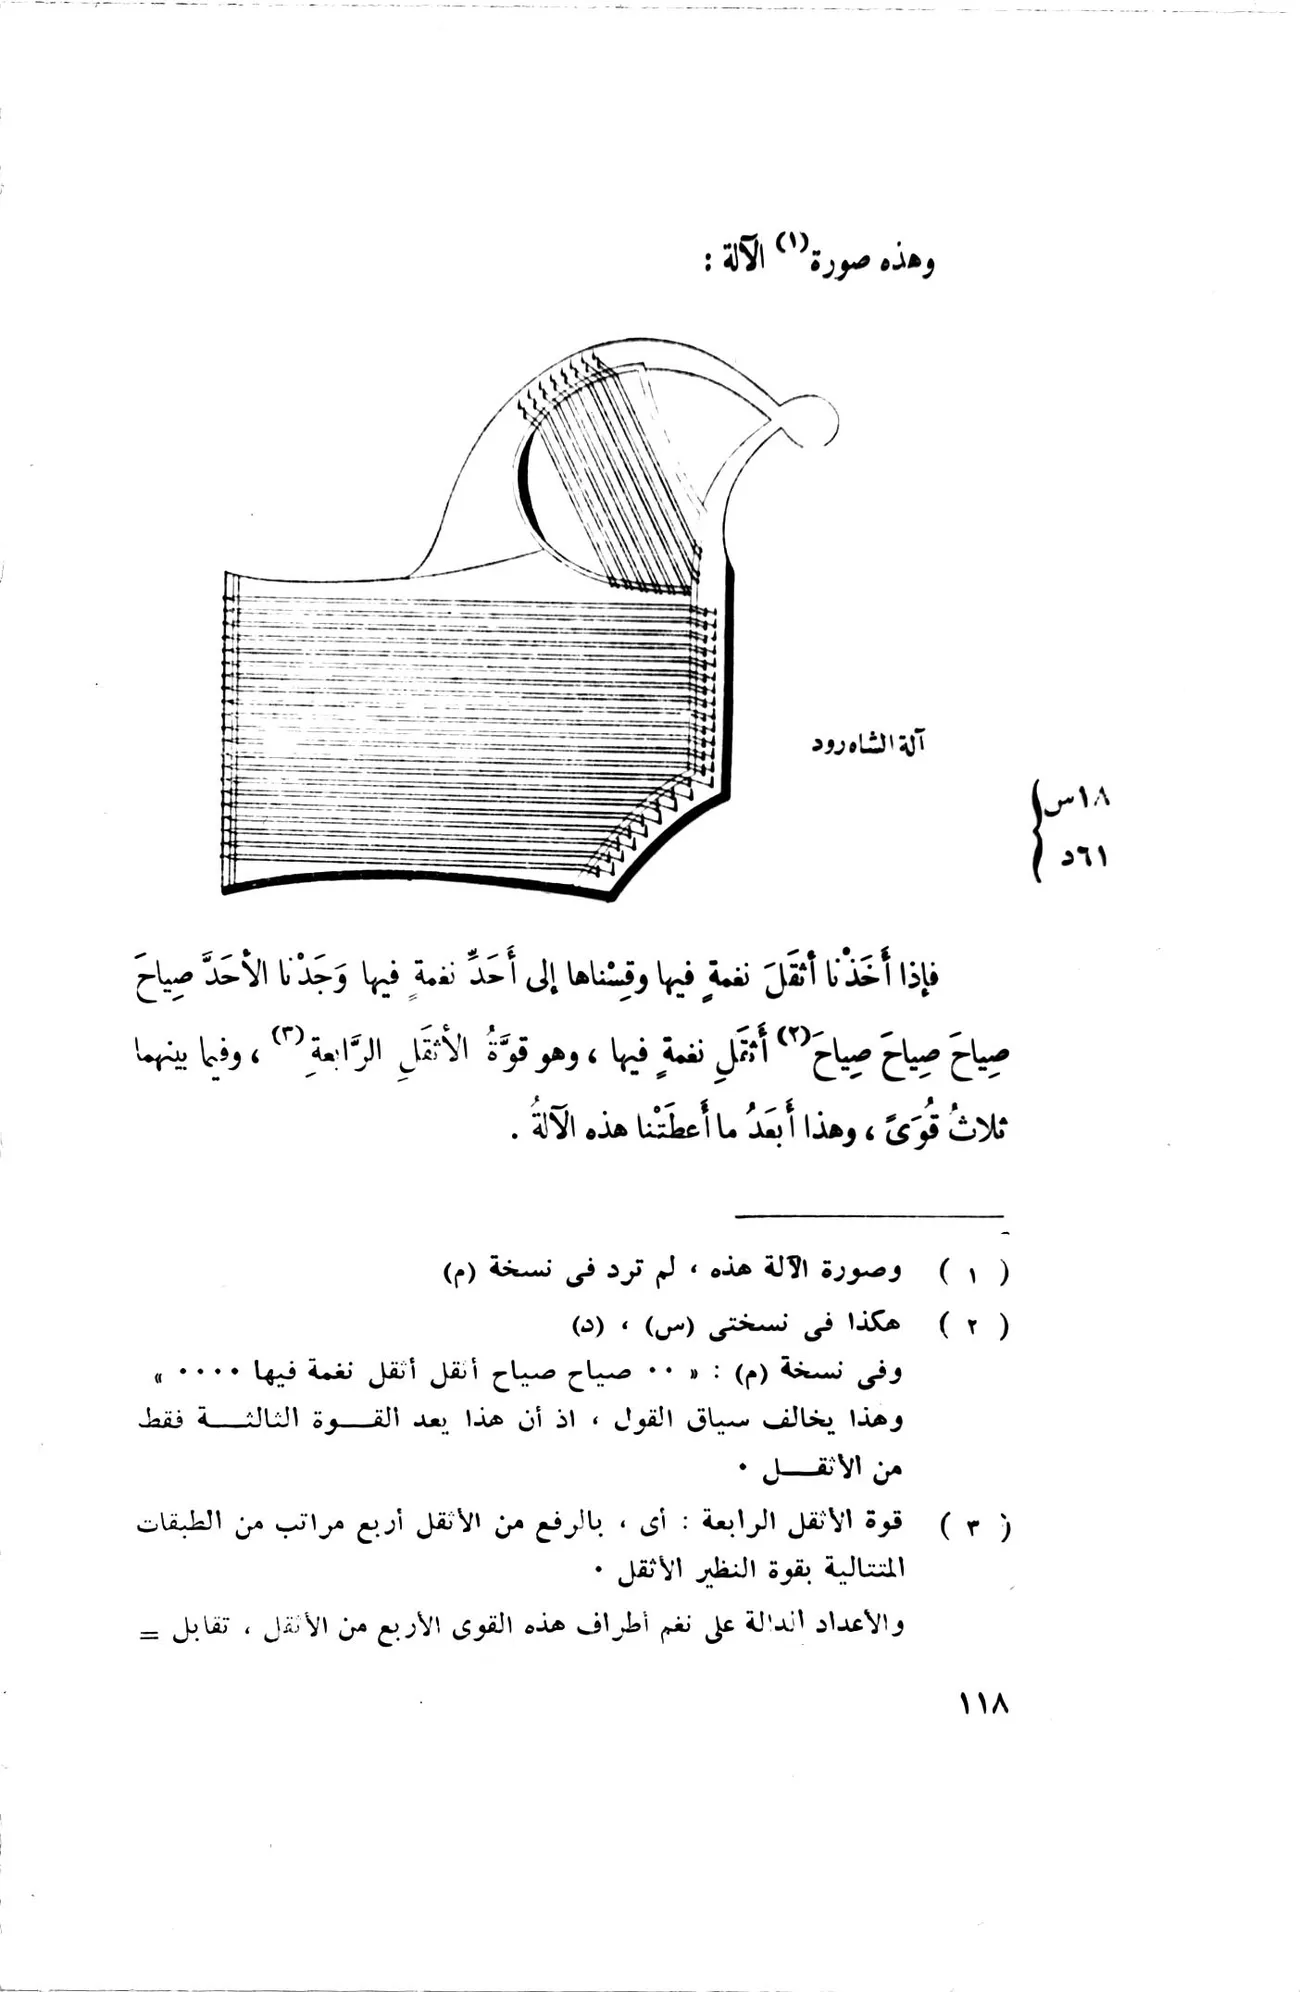 وهذه صورة(١) الآلة :
آلة الشاه رود
١٨س
٦١د
فإذا أَخَذْنا أثقَلَ نغمةٍ فيها وقِسْناها إلى أَحَدِّ نغمةٍ فيها وَجَدْنا الأحَدَّ صِياحَ
صِياحَ صِياحَ صِياحَ(٢) أَثقَلِ نغمةٍ فيها ، وهو قوَّةُ الأثقَلِ الرَّابعةِ(٣) ، وفيما بينهما
ثلاثُ قُوَىً ، وهذا أَبعَدُ ما أَعطَتْنا هذه الآلةُ .
( ١ ) وصورة الآلة هذه ، لم ترد فى نسخة (م)
( ٢ ) هكذا فى نسختى (س) ، (د)
وفى نسخة (م) : « ٠٠ صياح صياح أثقل أثقل نغمة فيها ٠٠٠٠ »
وهذا يخالف سياق القول ، اذ أن هذا يعد القـــوة الثالثـــة فقط
من الأثقـــل ٠
( ٣ ) قوة الأثقل الرابعة : أى ، بالرفع من الأثقل أربع مراتب من الطبقات
المتتالية بقوة النظير الأثقل ٠
والأعداد الدالة على نغم أطراف هذه القوى الأربع من الأثقل ، تقابل =
١١٨